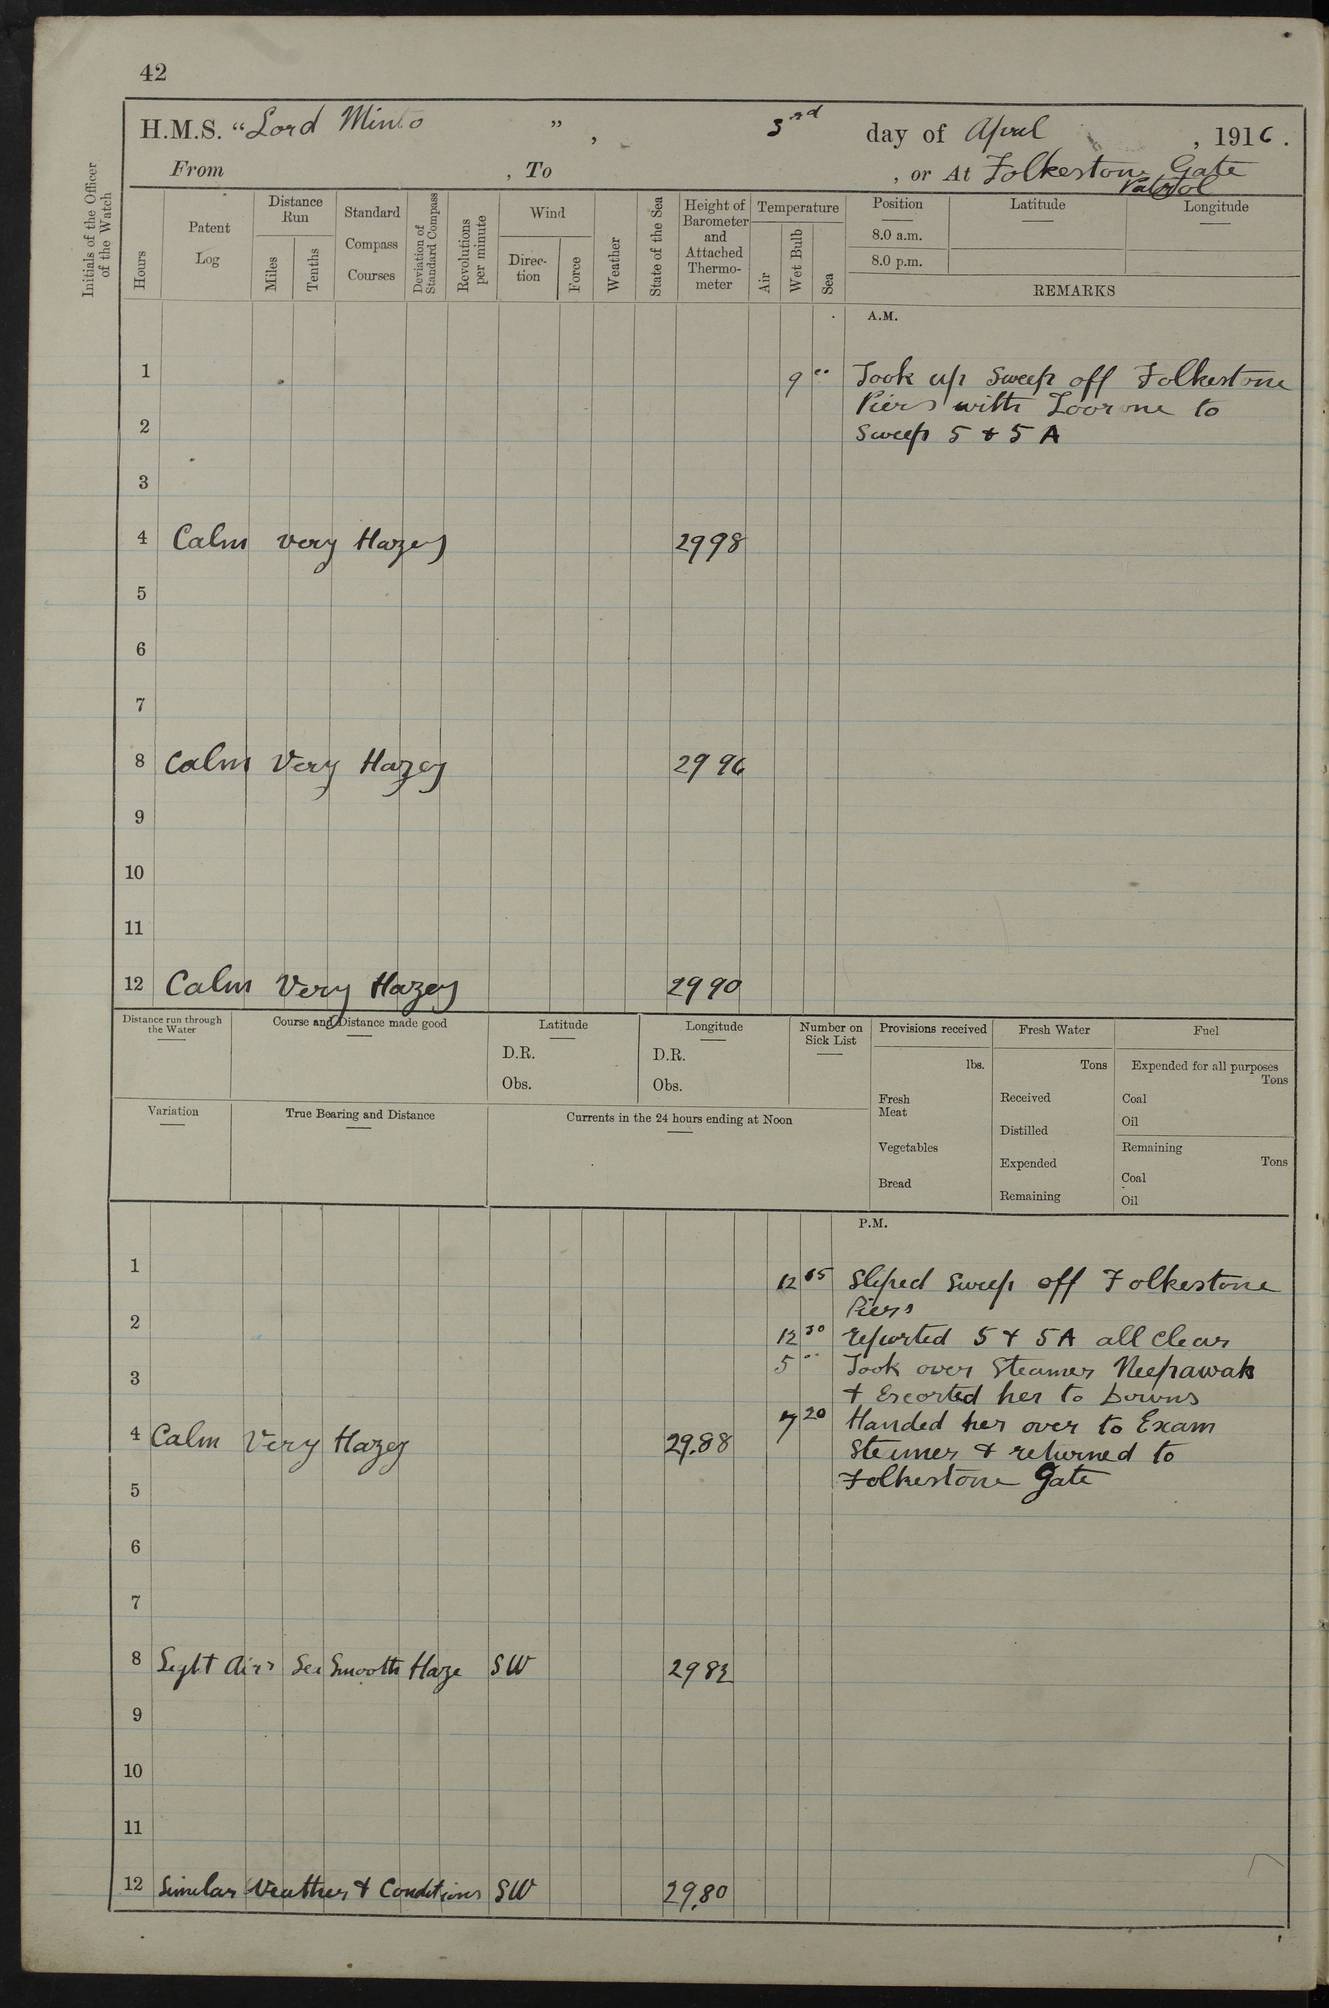 42
H.M.S. "Lord Minto", 3rd day of April, 1916.
From , To , or At Folkestone Gate
Patrol
Initials of the Officer of the Watch
Hours
Patent Log
Distance Run
Miles
Tenths
Standard Compass Courses
Deviation of Standard Compass
Revolutions per minute
Wind
Direction
Force
Weather
State of the Sea
Height of Barometer and Attached Thermometer
Temperature
Air
Wet Bulb
Sea
Position
8.0 a.m.
8.0 p.m.
Latitude
Longitude
REMARKS
A.M.
1 9 00 Took up Sweep off Folkestone
Piers with to
2 Sweep 5 + 5 A
3
4 Calm very Hazey 2998
5
6
7
8 Calm Very Hazey 29 96
9
10
11
12 Calm Very Hazey 29 90
Distance run through the Water
Course and Distance made good
Latitude
D.R.
Obs.
Longitude
D.R.
Obs.
Number on Sick List
Provisions received
lbs.
Fresh Meat
Vegetables
Bread
Fresh Water
Tons
Received
Distilled
Expended
Remaining
Fuel
Expended for all purposes
Tons
Coal
Oil
Remaining
Tons
Coal
Oil
Variation
True Bearing and Distance
Currents in the 24 hours ending at Noon
P.M.
1 12 05 Sliped Sweep off Folkestone
Piers
2 12 30 reported 5 + 5A all clear
5 00 Took over Steamer Neepawah
3 + Escorted her to Downs
7 20 Handed her over to Exam
4 Calm Very Hazey 29.88 Steamer + returned to
5 Folkestone Gate
6
7
8 Light Airs Sea Smooth Haze SW 2982
9
10
11
12 Similar Weather + Conditions SW 29.80